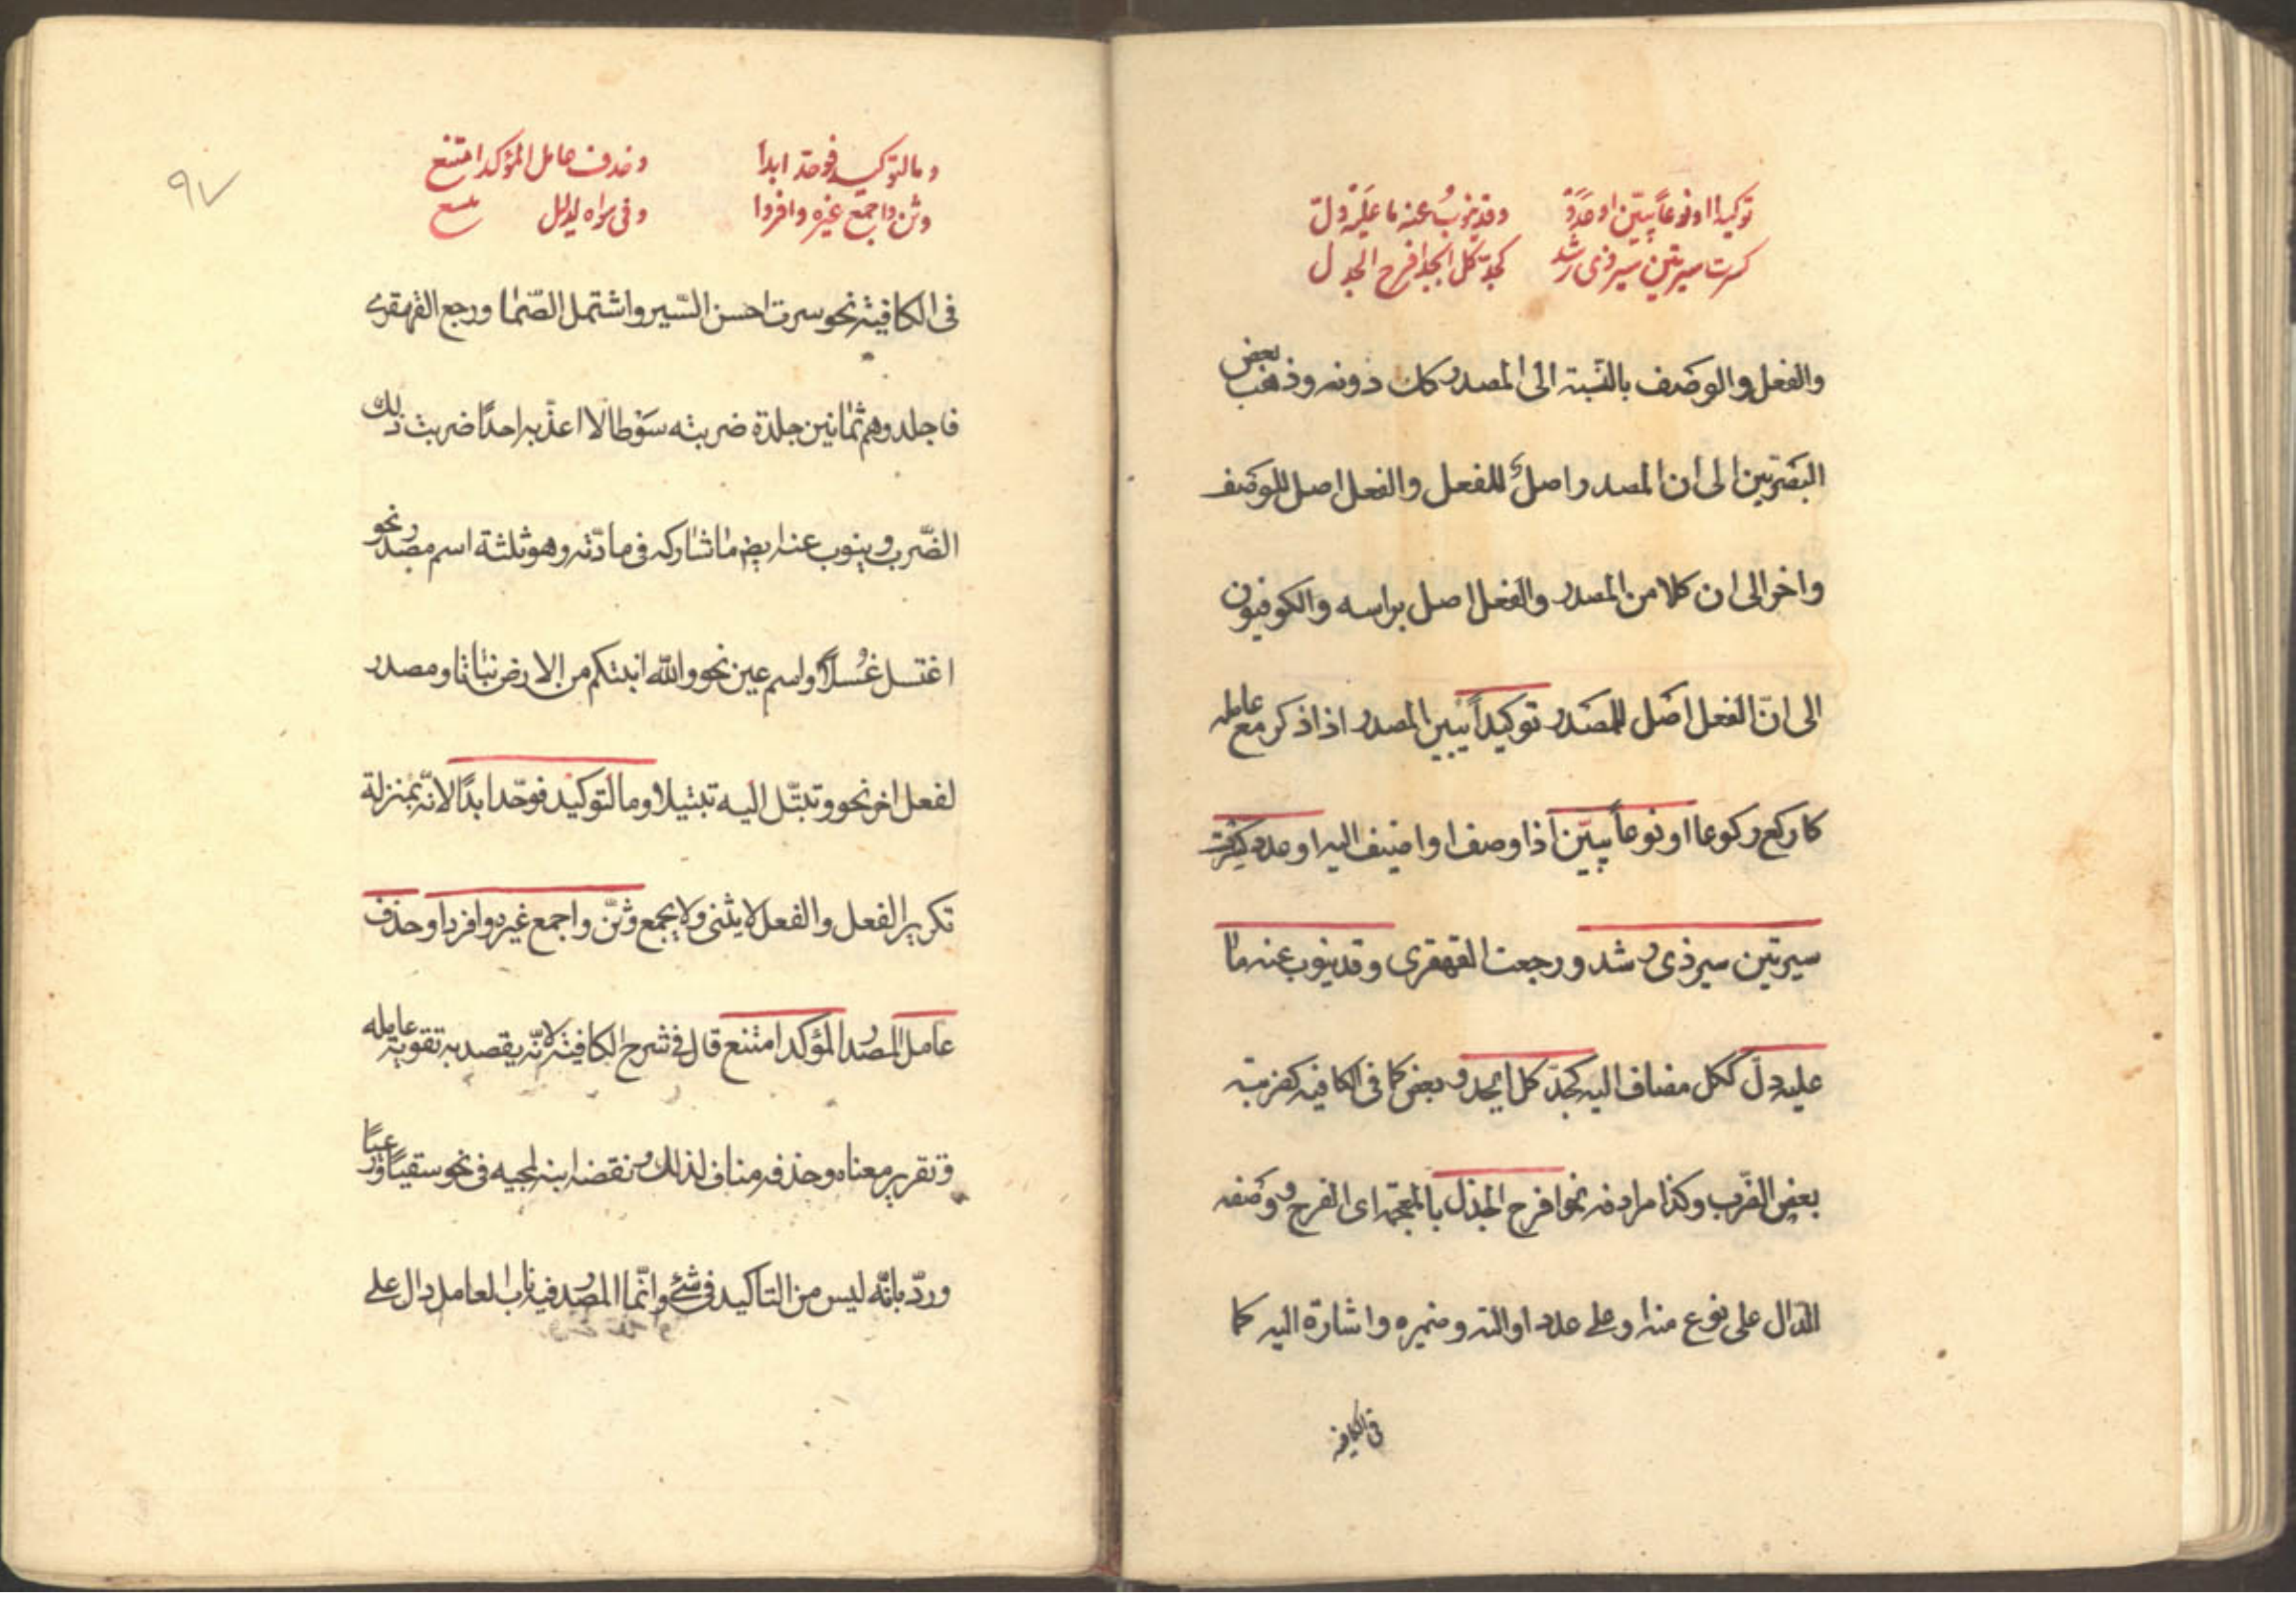 توكيدا او نوعاً يبيّن او عَدَدْ وقد ينوبُ عنه ما عليْه دلّ
كسرت سيرتين سير ذى رشد كجدّ كل الجد وافرح الجدل
والفعل والوصف بالنّسبة الى المصدر كك دونه وذهب بعض
البصَريّين الى ان المصدر اصلٌ للفعل والفعل اصل للوصف
واخر الى ان كلا من المصدر والفعل اصل براسه والكوفيون
الى انّ الفعل اصل للمصدر توكيداً يبين المصدر اذا ذكر مع عامله
كاركع ركوعا او نوعاً يبيّن اذا وصف او اضيف اليه او عدد كسرت
سيرتين سير ذى رشد ورجعت القهقرى وقد ينوب عنه ما
عليه دلّ ككل مضاف اليه كجدّ كل الجد وبعض كما فى الكافيه كضربته
بعض الضّرب وكذا مرادفه نحو افرح الجذل بالمعجمة اى الفرح ووصفه
الدّال على نوع منه او على عدد او الته وضميره واشارة اليه كما
فى الكافيه
٩٧
وما لتوكيد فوحّد ابدا وحذف عامل المؤكد امتنع
وثنّ واجمع غيره وافردا وفى سواه لدليل متسع
فى الكافيّة نحو سرت احسن السّير واشتمل الصّمّا ورجع القهقرى
فاجلدوهم ثمانين جلدة ضربته سَوْطا لا اعذّبه احدًا ضربت ذلك
الضّرب وينوب عنه ايض ما شاركه فى مادّته وهو ثلثة اسم مصدر نحو
اغتسل غُسلًا واسم عين نحو والله انبتكم من الارض نباتا ومصدر
لفعل اخر نحو وتبتّل اليه تبتيلا وما لتوكيد فوحّد ابدًا لانّه بمنزلة
تكرير الفعل والفعل لا يثنى ولا يجمع وثنّ واجمع غيره وافردا وحذف
عامل المصدر المؤكد امتنع قال فى شرح الكافيّة لانّه يقصد به تقوية عامله
وتقرير معناه وحذفه مناف لذلك ونقضه ابنه لمجيه فى نحو سقيًا ورعيًا
وردّ بانّه ليس من التاكيد فى شئ وانّما المصدر فيه ناب العامل دال على